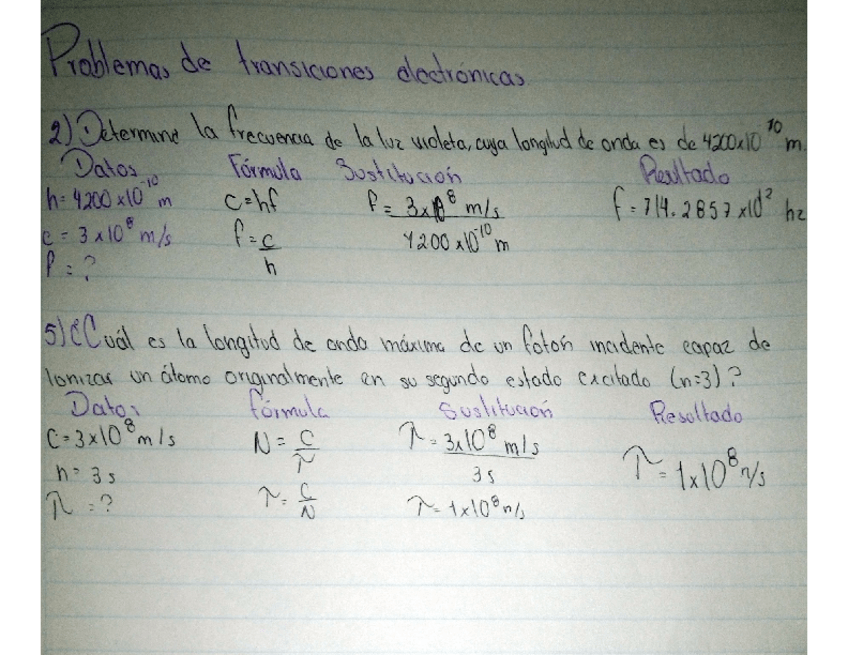 Problemas de transiciones electrónicas
2) Determine la frecuencia de la luz violeta, cuya longitud de onda es de 4200x10^-10 m.
Datos Fórmula Sustitución Resultado
h=4200x10^-10 m c=hf f= 3x10^8 m/s f=714.2857x10^2 hz
c=3x10^8 m/s f=c/h 4200x10^-10 m
f=?
5) ¿Cuál es la longitud de onda máxima de un fotón incidente capaz de
Ionizar un átomo originalmente en su segundo estado excitado (n=3)?
Datos Fórmula Sustitución Resultado
c=3x10^8 m/s N=c/λ λ=3x10^8 m/s / 3s λ=1x10^8 m/s
n=3s
λ=? λ=c/N λ=1x10^8 m/s